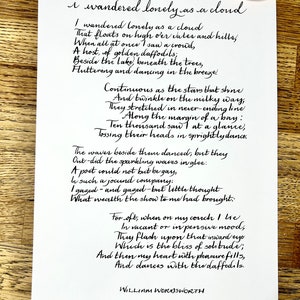 I wandered lonely as a cloud
I wandered lonely as a cloud
That floats on high o'er vales and hills,
When all at once I saw a crowd,
A host of golden daffodils;
Beside the lake, beneath the trees,
Fluttering and dancing in the breeze.
Continuous as the stars that shine
And twinkle on the milky way,
They stretched in never-ending line
Along the margin of a bay:
Ten thousand saw I at a glance,
Tossing their heads in sprightly dance.
The waves beside them danced, but they
Out-did the sparkling waves in glee:
A poet could not but be gay,
In such a jocund company:
I gazed - and gazed - but little thought
What wealth the show to me had brought:
For oft, when on my couch I lie
In vacant or in pensive mood,
They flash upon that inward eye
Which is the bliss of solitude;
And then my heart with pleasure fills,
And dances with the daffodils.
WILLIAM WORDSWORTH